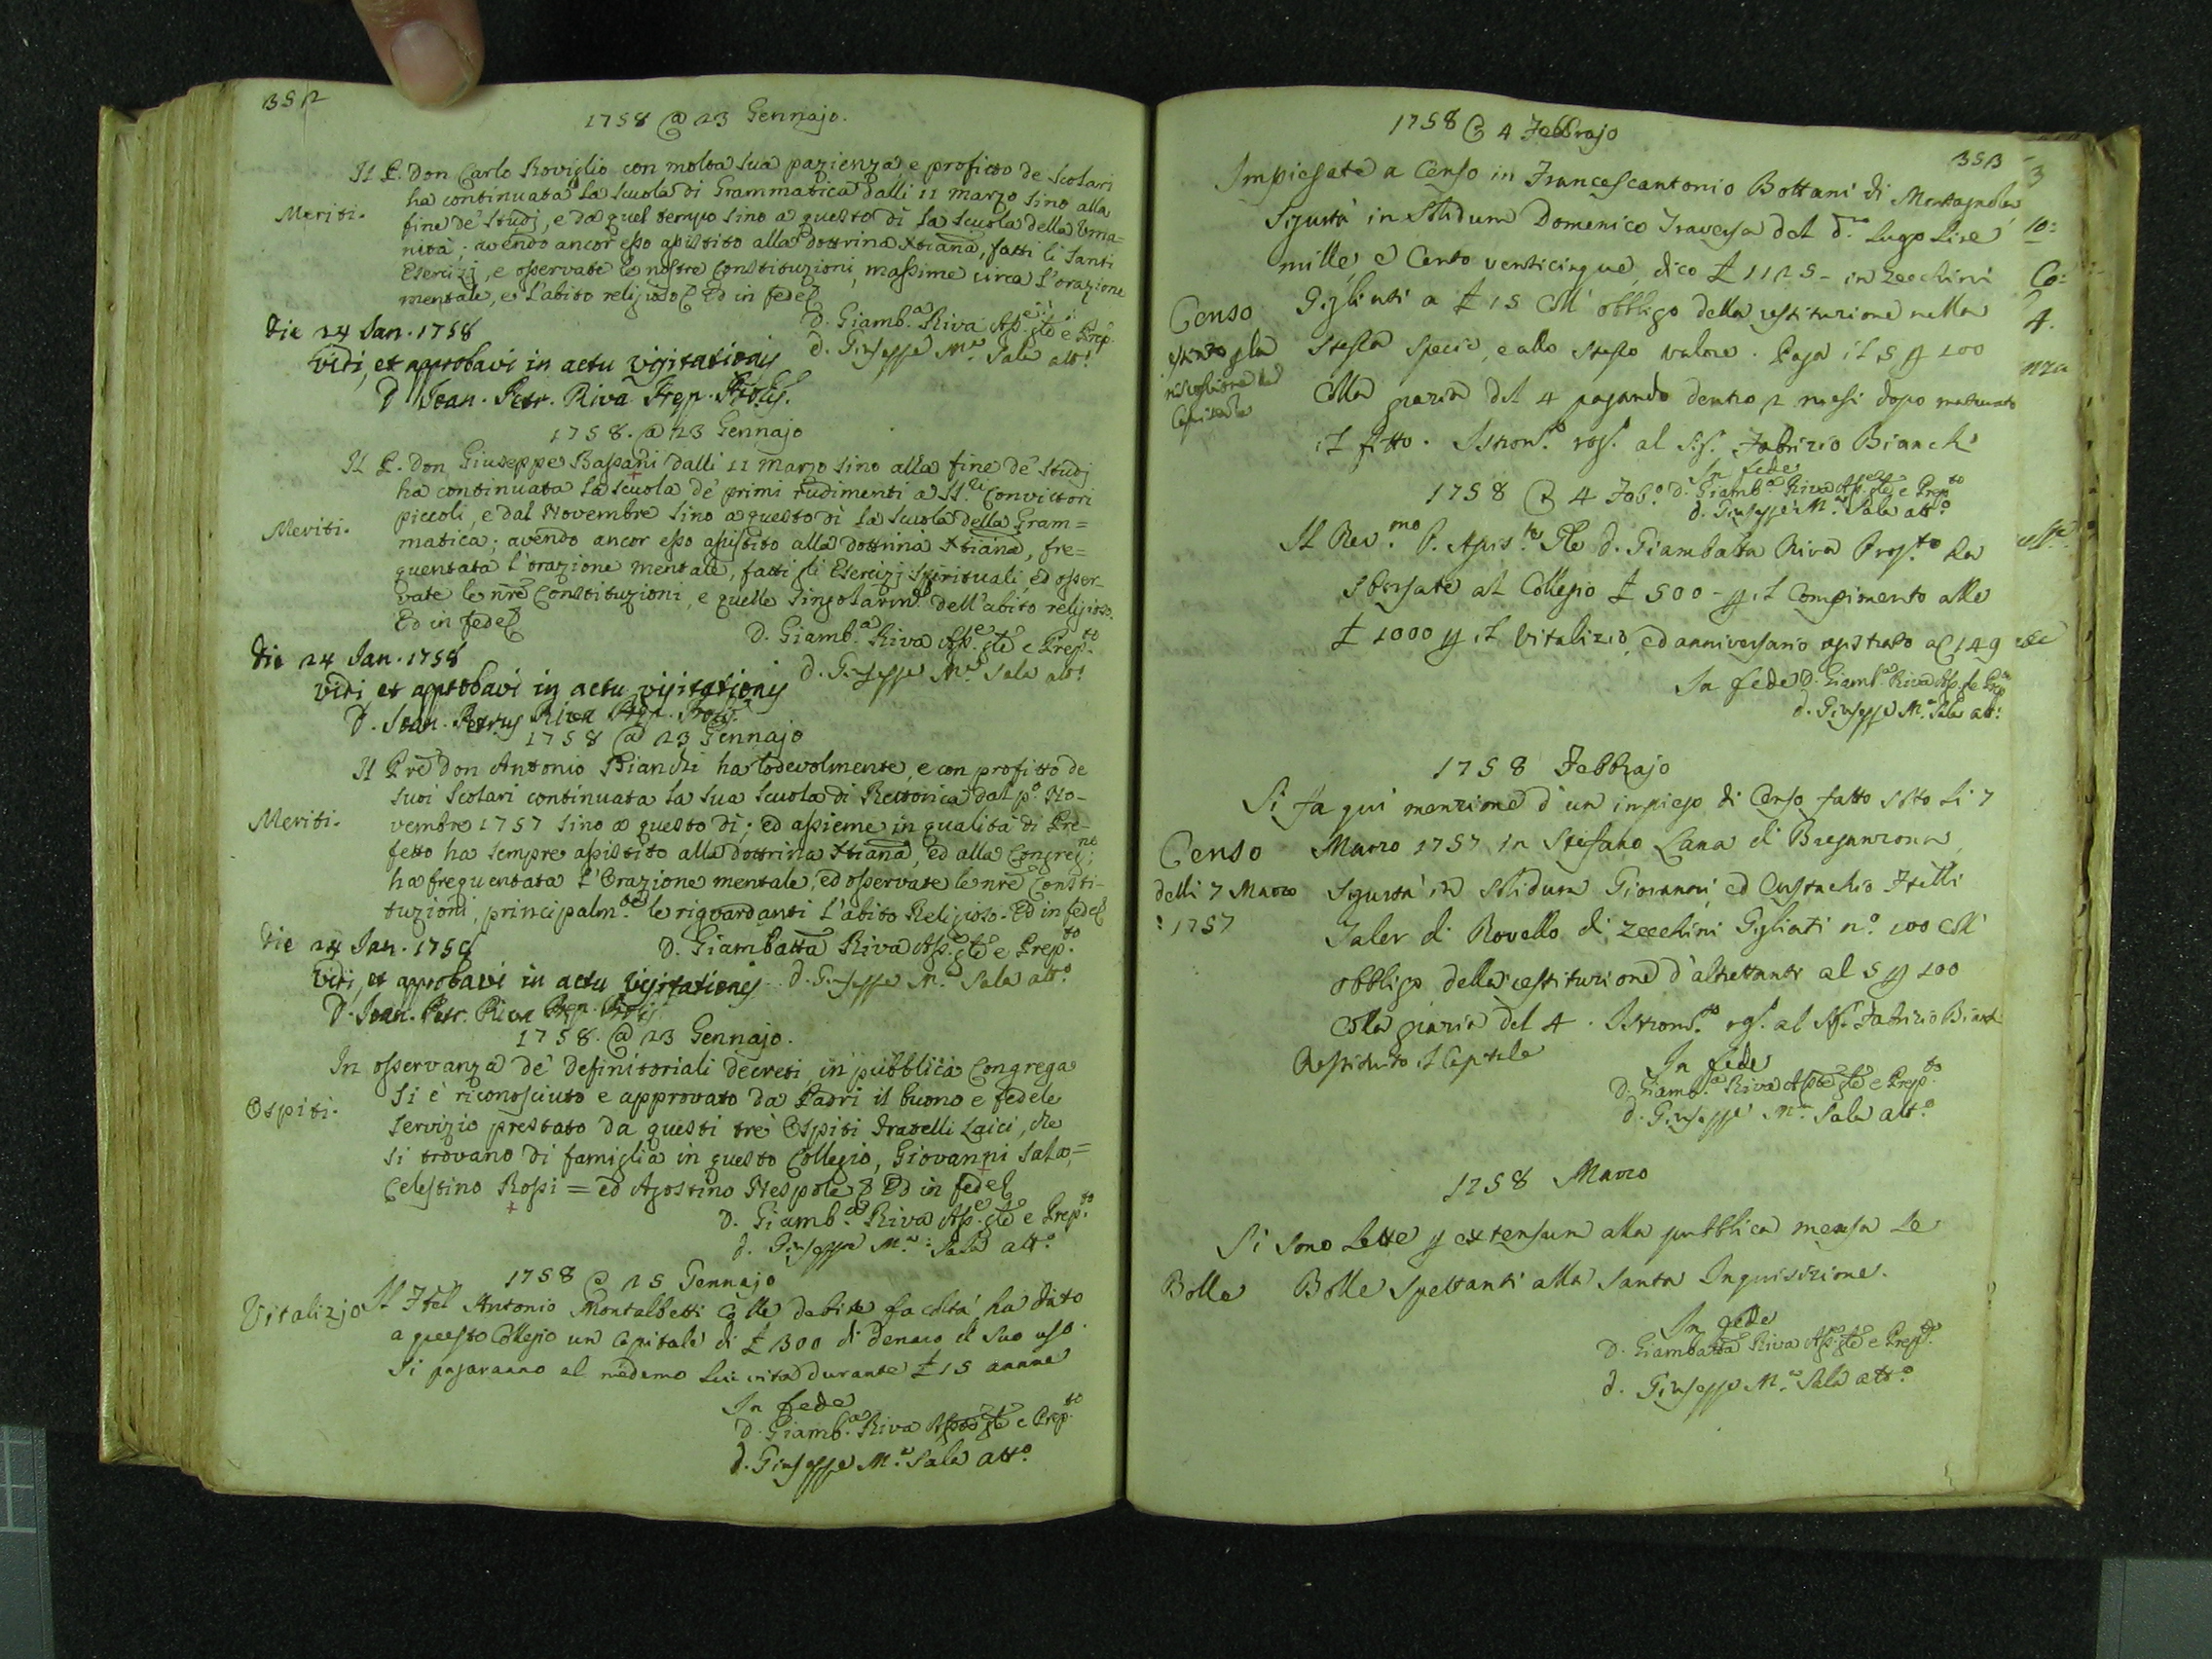 352
1758 @ 23 Gennajo.
Il P. Don Carlo Roviglio con molta sua pazienza, e profitto de Scolari
ha continuata la Scuola di Grammatica dalli 11 Marzo sino alla
Meriti.
fine de' Studj, e da quel tempo sino a questo dì la Scuola della Uma=
nità; avendo ancor esso assistito alla dottrina Xtiana, fatti li Santi
Esercizj, e osservate le nostre Constituzioni, massime circa l'orazione
mentale, e l'abito religioso. Ed in fede
D. Giamb.a Riva Ass.e gle e Prep.to
d. Giuseppe M.a Sala att.o
Die 24 Jan. 1758
Vidi, et approbavi in actu visitationis
D. Joan. Petr. Riva Prep. Prolis.
1758. @ 23 Gennajo
Il P. Don Giuseppe Bassani dalli 11 Marzo sino alla fine de' Studj
ha continuata la scuola de' primi rudimenti a SS.ri Convittori
piccoli, e dal Novembre sino a questo dì la Scuola della Gram=
Meriti.
matica; avendo ancor esso assistito alla dottrina Xtiana, fre=
quentata l'orazione mentale, fatti li Esercizj Spirituali, ed osser-
vate le nre Constituzioni, e quelle singolarm.e dell'abito religioso.
Ed in fede
D. Giamb.a Riva Ass.e gle e Prep.to
d. Giuseppe M.a Sala att.o
Die 24 Jan. 1758
Vidi et approbavi in actu visitationis
D. Joan. Petrus Riva Prep. Prolis.
1758 @ 23 Gennajo
Il Pre Don Antonio Bianchi ha lodevolmente, e con profitto de
suoi Scolari continuata la sua Scuola di Rettorica dal p.o No-
Meriti.
vembre 1757 sino a questo dì; ed assieme in qualità di Pre-
fetto ha sempre assistito alla dottrina Xtiana, ed alla Congreg.ne;
ha frequentata l'Orazione mentale, ed osservate le nre Consti-
tuzioni, principalm.te le riguardanti l'abito Religioso. Ed in fede
D. Giambatta Riva Ass.e gle e Prep.to
d. Giuseppe M.a Sala att.o
Die 24 Jan. 1758
Vidi, et approbavi in actu visitationis
D. Joan. Petr. Riva Prep. Prolis.
1758. @ 23 Gennajo.
In osservanza de' definitoriali decreti, in pubblica Congrega
Si è riconosciuto e approvato da Padri il buono e fedele
Ospiti.
servizio prestato da questi trè Ospiti Fratelli Laici, che
si trovano di famiglia in questo Collegio, Giovanni Sala,=
Celestino Rossi = ed Agostino Nespole. Ed in fede
D. Giamb.a Riva Ass.e gle e Prep.to
d. Giuseppe M.a Sala att.o
1758 @ 25 Gennajo
Vitalizjo
Il Ftel Antonio Montalbetti colle debite facoltà ha dato
a questo Collegio un Capitale di £ 300 di denaro di suo uso.
Si pagaranno al medemo sua vita durante £ 15 annue
In fede
D. Giamb.a Riva Ass.te gle e Prep.to
d. Giuseppe M.a Sala att.o
353
1758 @ 4 Febbrajo
Impiegate a Censo in Francescantonio Bottani di Montagnola
Sigurtà in Solidum Domenico Traversa del d.o Lugo Lire
mille, e Cento venticinque, dico £ 1125 - in Zecchini
Censo
Gigliati a £ 15 coll' obbligo della restituzione nella
stessa specie, e allo stesso valore. Paga il 5 p 100
colla grazia del 4 pagando dentro 2 mesi dopo maturato
il fitto. Istrom.o rog.o al Sig. Fabrizio Bianchi
In fede
D. Giamb.a Riva Ass.e gle e Prep.to
d. Giuseppe M.a Sala att.o
1758 @ 4 Feb.o
Il Rev.mo P. Assis.te Gle D. Giambatta Riva Prep.to ha
sborsate al Collegio £ 500 - p il Compimento alle
£ 1000 p il Vitalizio, ed anniversario registrato a 149
In fede D. Giamb.a Riva Ass. gle Prep.to
d. Giuseppe M.a Sala att.o
1758 Febbrajo
Si fa qui menzione d'un impiego di Censo fatto sotto li 7
Censo
delli 7 Marzo
1757
Marzo 1757 in Stefano Lana di Breganzona
Sigurtà in Solidum Giovanni, ed Eustachio Ftelli
Taler di Rovello di Zecchini Gigliati n.o 100 coll'
obbligo della restituzione d'altrettanti al 5 p 100
colla grazia del 4. Istrom.to rog. al Sig. Fabrizio Bianchi
Restituito il Capitale
In fede
D. Giamb.a Riva Ass.te gle e Prep.to
d. Giuseppe M.a Sala att.o
1758 Marzo
Si sono lette p extensum alla pubblica mensa le
Bolle
Bolle spettanti alla Santa Inquisizione.
In fede
D. Giambatta Riva Ass.e gle e Prep.to
d. Giuseppe M.a Sala att.o